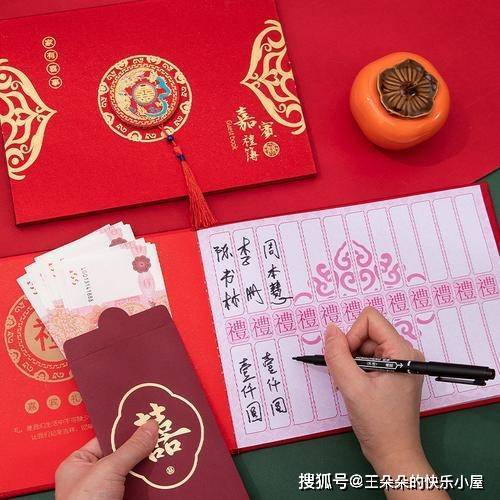 家有喜事
嘉賓
禮簿
Guest book
周本慧
李册
陈书林
禮禮禮禮禮禮禮禮禮禮
壹仟圆
壹仟圆
禮
嘉宾礼
囍
搜狐号@王朵朵的快乐小屋